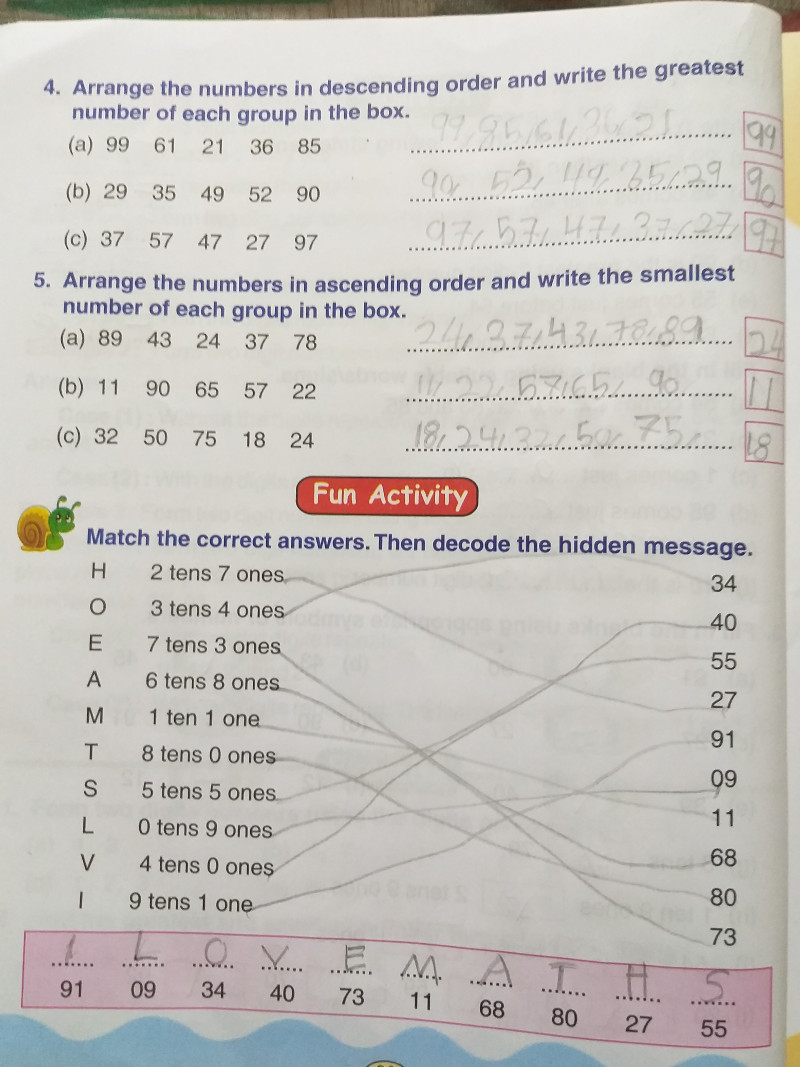 4. Arrange the numbers in descending order and write the greatest
number of each group in the box.
(a) 99 61 21 36 85 99, 85, 61, 36, 21 99
(b) 29 35 49 52 90 90, 52, 49, 35, 29 90
(c) 37 57 47 27 97 97, 57, 47, 37, 27, 97
5. Arrange the numbers in ascending order and write the smallest
number of each group in the box.
(a) 89 43 24 37 78 24, 37, 43, 78, 89 24
(b) 11 90 65 57 22 11, 22, 57, 65, 90 11
(c) 32 50 75 18 24 18, 24, 32, 50, 75, 18
Fun Activity
Match the correct answers. Then decode the hidden message.
H 2 tens 7 ones 34
O 3 tens 4 ones 40
E 7 tens 3 ones 55
A 6 tens 8 ones 27
M 1 ten 1 one 91
T 8 tens 0 ones 09
S 5 tens 5 ones 11
L 0 tens 9 ones 68
V 4 tens 0 ones 80
I 9 tens 1 one 73
I L O V E M A T H S
91 09 34 40 73 11 68 80 27 55